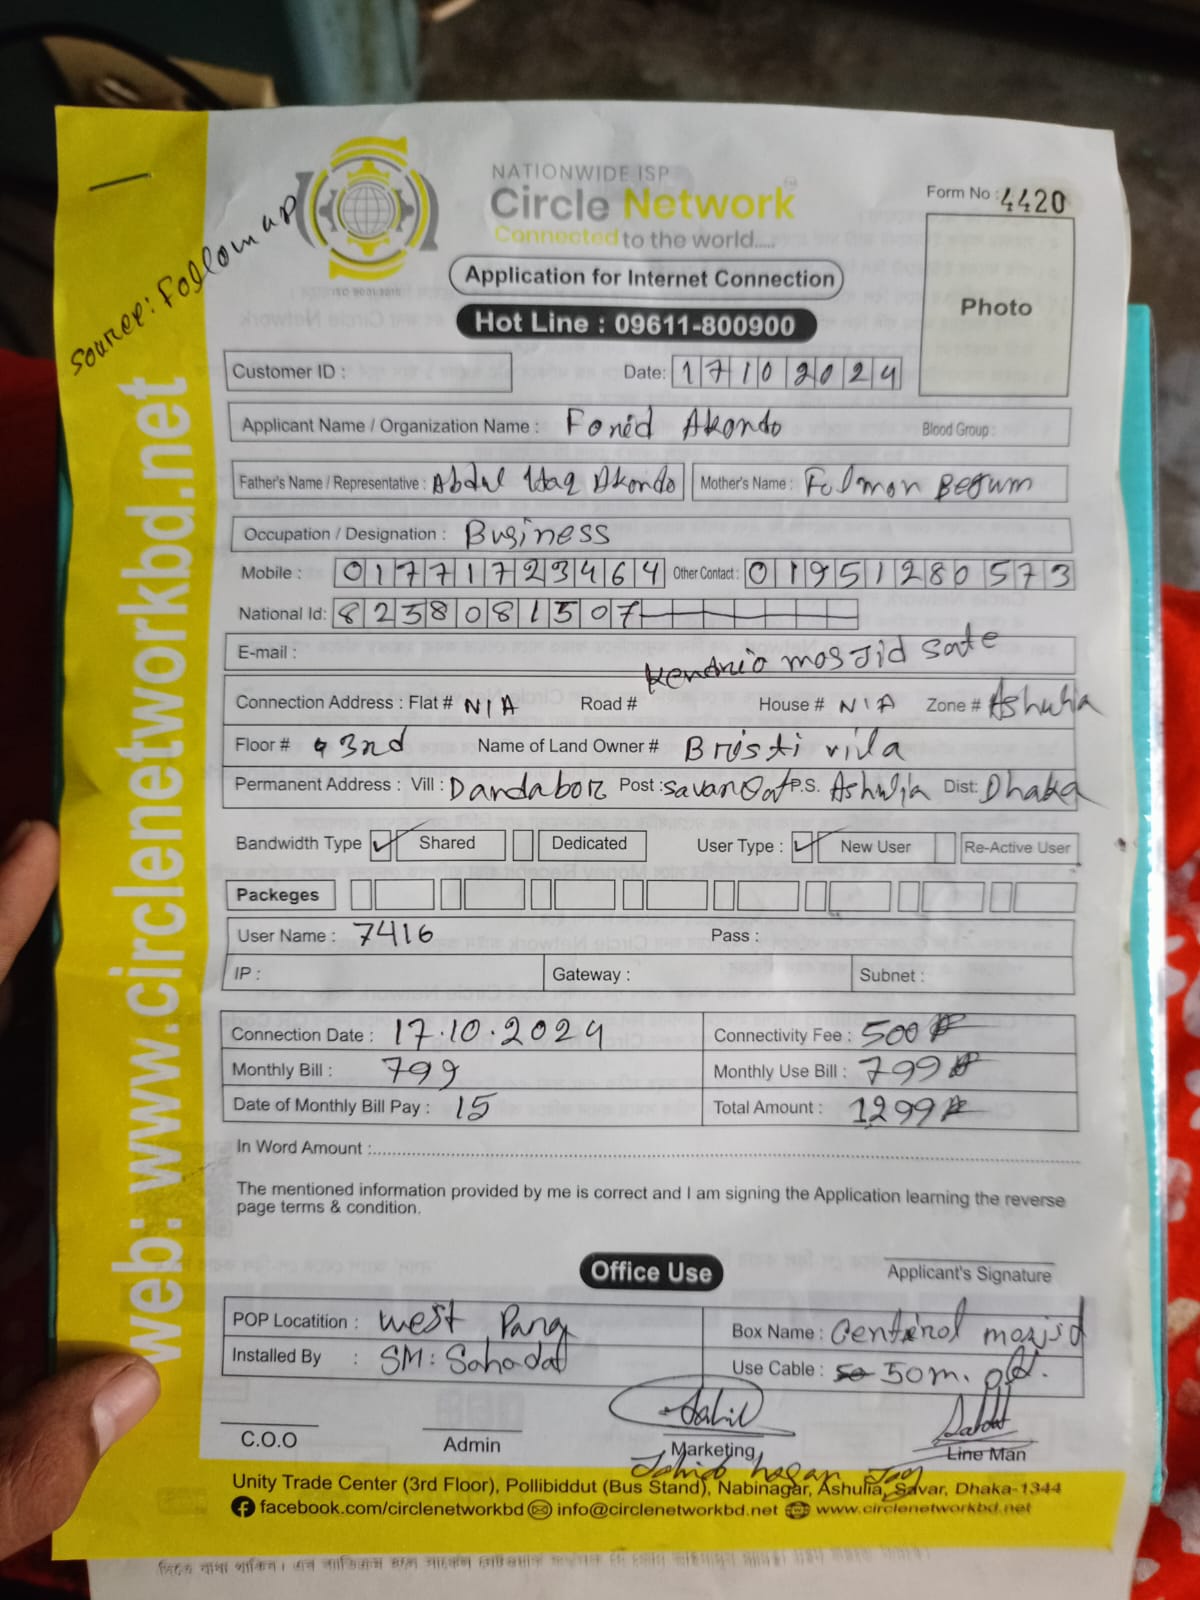 NATIONWIDE ISP
Circle Network
Connected to the world.....
Form No : 4420
Source: Follow up
ISO 9001:2015
Application for Internet Connection
Photo
Hot Line : 09611-800900
Customer ID :
Date: 17102024
Applicant Name / Organization Name : Forid Akondo
Blood Group :
Father's Name / Representative : Abdul Haq Akondo
Mother's Name : Fulmon Begum
Occupation / Designation : Business
Mobile : 01771723464 Other Contact : 01951280573
National Id: 8238081507
E-mail :
Kendrio mosjid Sate
Connection Address : Flat # N/A Road # House # N/A Zone # Ashulia
Floor # 3nd Name of Land Owner # Bristi vila
Permanent Address : Vill : Dandabor Post : savar P.S. Ashulia Dist: Dhaka
Bandwidth Type Shared Dedicated User Type : New User Re-Active User
Packeges
User Name : 7416 Pass :
IP : Gateway : Subnet :
Connection Date : 17.10.2024 Connectivity Fee : 500
Monthly Bill : 799 Monthly Use Bill : 799
Date of Monthly Bill Pay : 15 Total Amount : 1299
In Word Amount :
The mentioned information provided by me is correct and I am signing the Application learning the reverse
page terms & condition.
Office Use
Applicant's Signature
POP Locatition : West Para Box Name : Centrol mosjid
Installed By : SM: Sahadat Use Cable : 50m. old.
C.O.O Admin Marketing Line Man
Unity Trade Center (3rd Floor), Pollibiddut (Bus Stand), Nabinagar, Ashulia, Savar, Dhaka-1344
facebook.com/circlenetworkbd info@circlenetworkbd.net www.circlenetworkbd.net
web: www.circlenetworkbd.net